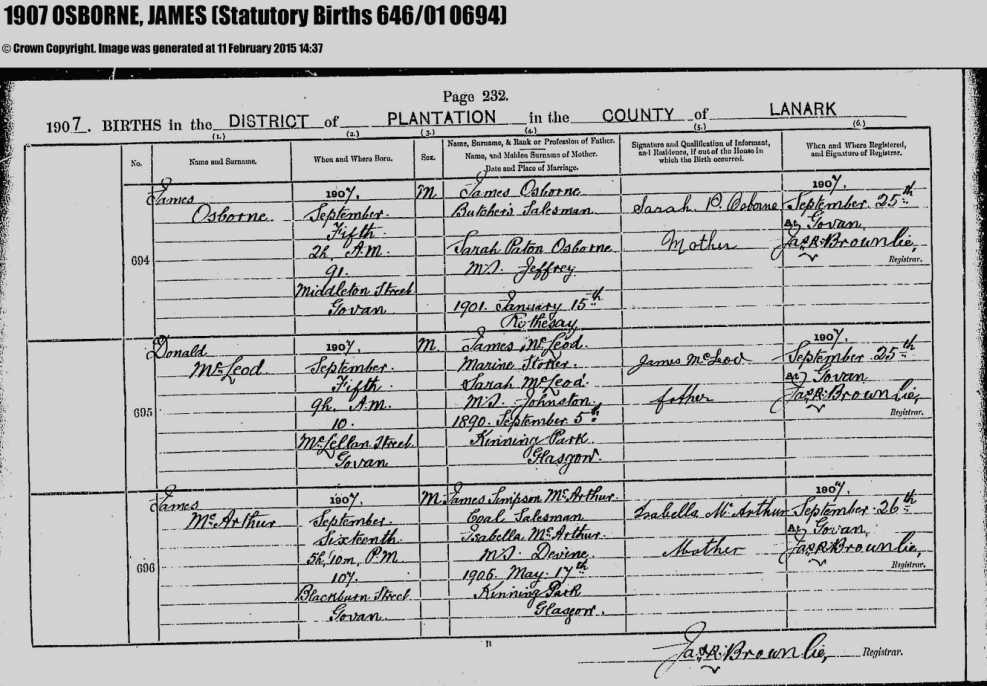 1907 OSBORNE, JAMES (Statutory Births 646/01 0694)
© Crown Copyright. Image was generated at 11 February 2015 14:37
Page 232.
1907. BIRTHS in the DISTRICT of PLANTATION in the COUNTY of LANARK
(1.) (2.) (3.) (4.) (5.) (6.)
No.
Name and Surname.
When and Where Born.
Sex.
Name, Surname, & Rank or Profession of Father.
Name, and Maiden Surname of Mother.
Date and Place of Marriage.
Signature and Qualification of Informant,
and Residence, if out of the House in
which the Birth occurred.
When and Where Registered,
and Signature of Registrar.
694
James
Osborne
1907,
September
Fifth
2h. A.M.
91.
Middleton Street
Govan
M.
James Osborne
Butcher's Salesman
Sarah Paton Osborne
M.S. Jeffrey
1901. January 15th
Rothesay
Sarah P. Osborne
Mother
1907.
September 25th
At Govan,
Jas R. Brownlie,
Registrar.
695
Donald
McLeod
1907,
September
Fifth
9h. A.M.
10.
McLellan Street
Govan
M.
James McLeod
Marine Stoker
Sarah McLeod
M.S. Johnston
1890. September 5th
Kinning Park
Glasgow.
James McLeod
father
1907.
September 25th
At Govan
Jas R. Brownlie,
Registrar.
696
James
McArthur
1907,
September
Sixteenth
5h. 10m. P.M.
107.
Blackburn Street
Govan
M.
James Simpson McArthur
Coal Salesman
Isabella McArthur
M.S. Devine
1906. May 17th
Kinning Park
Glasgow.
Isabella McArthur
Mother
1907.
September 26th
At Govan,
Jas R. Brownlie,
Registrar.
Jas R. Brownlie, Registrar.